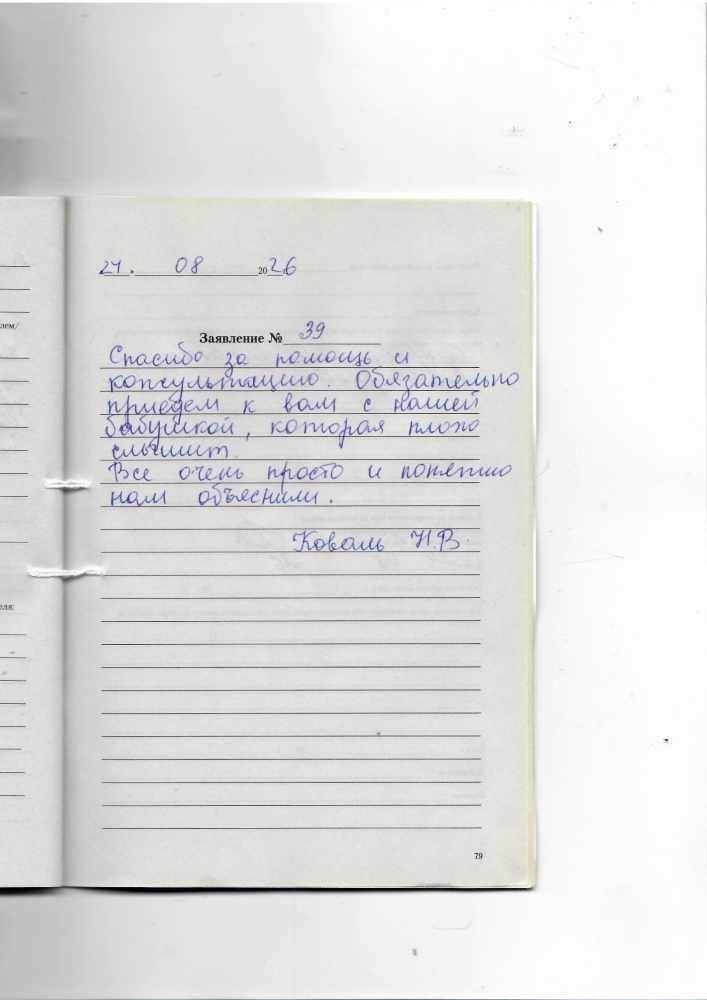 лем/
еля:
27. 08 2026
Заявление № 39
Спасибо за помощь и
консультацию. Обязательно
приедем к вам с нашей
бабушкой, которая плохо
слышит.
Все очень просто и понятно
нам объяснили.
Коваль Н.В.
79